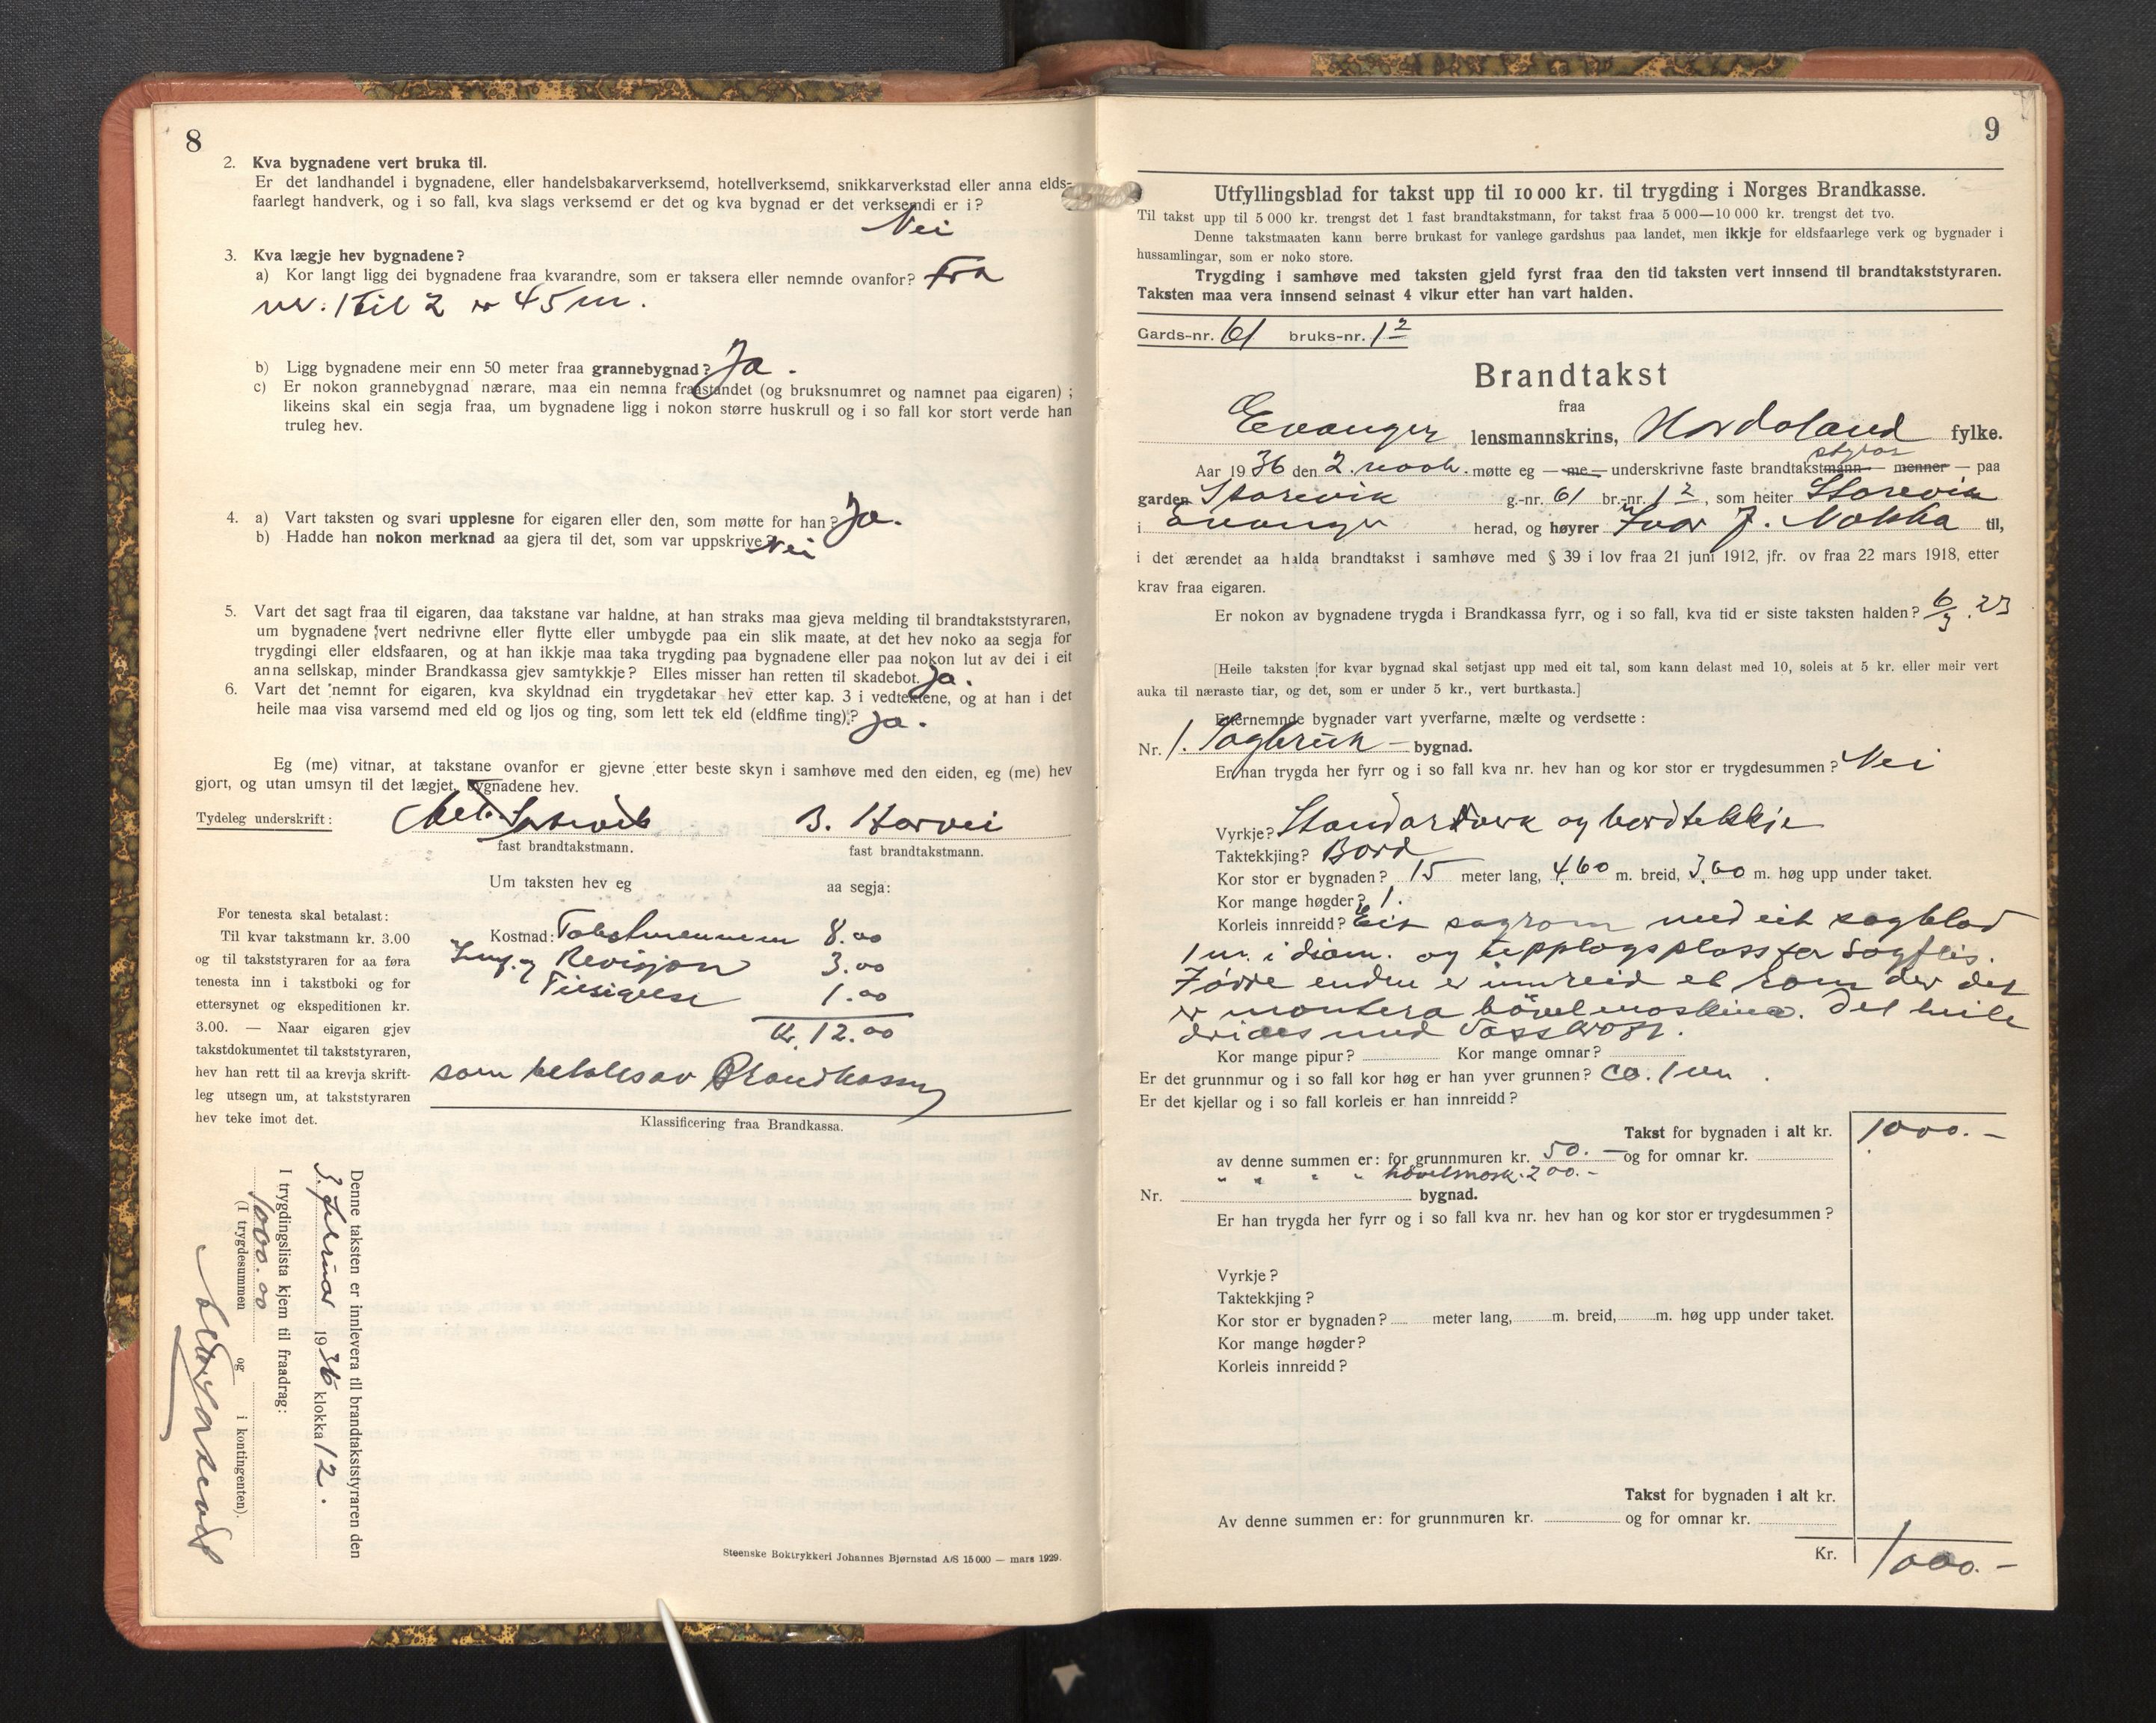 8
2. Kva bygnadene vert bruka til.
Er det landhandel i bygnadene, eller handelsbakarverksemd, hotellverksemd, snikkarverkstad eller anna elds-
faarlegt handverk, og i so fall, kva slags verksemd er det og kva bygnad er det verksemdi er i?
Nei
3. Kva lægje hev bygnadene?
a) Kor langt ligg dei bygnadene fraa kvarandre, som er taksera eller nemnde ovanfor? Fra
nr. 1 til 2 er 45 m.
b) Ligg bygnadene meir enn 50 meter fraa grannebygnad? Ja.
c) Er nokon grannebygnad nærare, maa ein nemna fraastandet (og bruksnumret og namnet paa eigaren);
likeins skal ein segja fraa, um bygnadene ligg i nokon større huskrull og i so fall kor stort verde han
truleg hev.
4. a) Vart taksten og svari upplesne for eigaren eller den, som møtte for han? Ja.
b) Hadde han nokon merknad aa gjera til det, som var uppskrive? Nei
5. Vart det sagt fraa til eigaren, daa takstane var haldne, at han straks maa gjeva melding til brandtakststyraren,
um bygnadene vert nedrivne eller flytte eller umbygde paa ein slik maate, at det hev noko aa segja for
trygdingi eller eldsfaaren, og at han ikkje maa taka trygding paa bygnadene eller paa nokon lut av dei i eit
anna sellskap, minder Brandkassa gjev samtykkje? Elles misser han retten til skadebot. Ja.
6. Vart det nemnt for eigaren, kva skyldnad ein trygdetakar hev etter kap. 3 i vedtektene, og at han i det
heile maa visa varsemd med eld og ljos og ting, som lett tek eld (eldfime ting)? Ja.
Eg (me) vitnar, at takstane ovanfor er gjevne etter beste skyn i samhøve med den eiden, eg (me) hev
gjort, og utan umsyn til det lægjet, bygnadene hev.
Tydeleg underskrift: B. Horvei
fast brandtakstmann. fast brandtakstmann.
Um taksten hev eg aa segja:
For tenesta skal betalast:
Til kvar takstmann kr. 3.00
og til takststyraren for aa føra
tenesta inn i takstboki og for
ettersynet og ekspeditionen kr.
3.00. — Naar eigaren gjev
takstdokumentet til takststyraren,
hev han rett til aa krevja skrift-
leg utsegn um, at takststyraren
hev teke imot det.
Kostnad: Takstmennene 8.00
Innf. og Revisjon 3.00
Tilsigelse 1.00
Kr. 12.00
som betales av Brandkassen
Klassificering fraa Brandkassa.
Denne taksten er innlevera til brandtakststyraren den
3. februar 1936 klokka 12.
I trygdingslista kjem til fraadrag:
1000.00
(I trygdesummen og i kontingenten).
Steenske Boktrykkeri Johannes Bjørnstad A/S 15 000 — mars 1929.
9
Utfyllingsblad for takst upp til 10 000 kr. til trygding i Norges Brandkasse.
Til takst upp til 5 000 kr. trengst det 1 fast brandtakstmann, for takst fraa 5 000—10 000 kr. trengst det tvo.
Denne takstmaaten kann berre brukast for vanlege gardshus paa landet, men ikkje for eldsfaarlege verk og bygnader i
hussamlingar, som er noko store.
Trygding i samhøve med taksten gjeld fyrst fraa den tid taksten vert innsend til brandtakststyraren.
Taksten maa vera innsend seinast 4 vikur etter han vart halden.
Gards-nr. 61 bruks-nr. 1 2
Brandtakst
fraa
Evanger lensmannskrins, Hordaland fylke.
styrar
Aar 1936 den 2. møtte eg — me — underskrivne faste brandtakstmann — menner — paa
garden Storevik g.-nr. 61 br.-nr. 1 2, som heiter Storevik
i Evanger herad, og høyrer Ivar J. til,
i det ærendet aa halda brandtakst i samhøve med § 39 i lov fraa 21 juni 1912, jfr. ov fraa 22 mars 1918, etter
krav fraa eigaren.
Er nokon av bygnadene trygda i Brandkassa fyrr, og i so fall, kva tid er siste taksten halden? 6/3.23
[Heile taksten for kvar bygnad skal setjast upp med eit tal, som kann delast med 10, soleis at 5 kr. eller meir vert
auka til næraste tiar, og det, som er under 5 kr., vert burtkasta.]
Etternemnde bygnader vart yverfarne, mælte og verdsette:
Nr. 1. Sagbruk — bygnad.
Er han trygda her fyrr og i so fall kva nr. hev han og kor stor er trygdesummen? Nei
Vyrkje? Standarverk og bordtekkje
Taktekkjing? Bord
Kor stor er bygnaden? 15 meter lang, 4,60 m. breid, 3,60 m. høg upp under taket.
Kor mange høgder? 1.
Korleis innreidd? Eit sagrom med eit sagblad
1 m. i diam. og upplagsplass for sagflis.
I øvre enden er innreid et rom der det
er montera høvelmaskine. Det heile
drives med vasskraft.
Kor mange pipur? Kor mange omnar?
Er det grunnmur og i so fall kor høg er han yver grunnen? ca. 1 m.
Er det kjellar og i so fall korleis er han innreidd?
Takst for bygnaden i alt kr. 1000.—
av denne summen er: for grunnmuren kr. 50.— og for omnar kr.
" " " " høvelmask. 200.—
Nr. bygnad.
Er han trygda her fyrr og i so fall kva nr. hev han og kor stor er trygdesummen?
Vyrkje?
Taktekkjing?
Kor stor er bygnaden? meter lang, m. breid, m. høg upp under taket.
Kor mange høgder?
Korleis innreidd?
Takst for bygnaden i alt kr.
Av denne summen er: for grunnmuren kr. og for omnar kr.
Kr. 1000.—